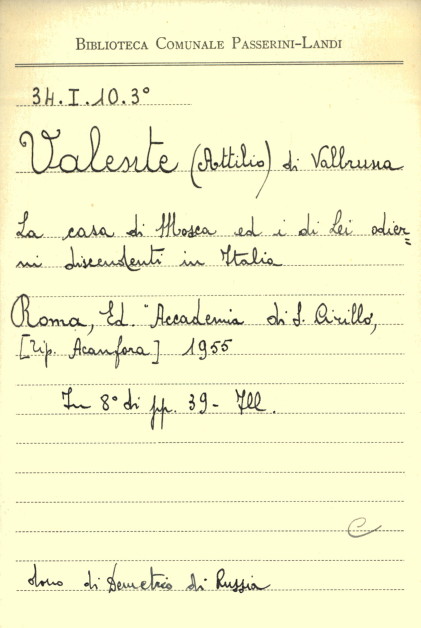 BIBLIOTECA COMUNALE PASSERINI-LANDI
34.I.10.3°
Valente (Attilio) di Valbruna
La casa di Mosca ed i di Lei odier=
ni discendenti in Italia
Roma, Ed. "Accademia di S. Cirillo",
[Tip. Acanfora] 1955
In 8° di pp. 39 - Ill.
C
dono di Demetrio di Russia